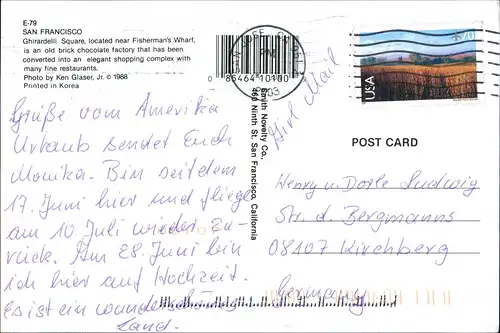 E-79
SAN FRANCISCO
Ghirardelli Square, located near Fisherman's Wharf,
is an old brick chocolate factory that has been
converted into an elegant shopping complex with
many fine restaurants.
Photo by Ken Glaser, Jr. © 1988
Printed in Korea
0 85464 10100
Smith Novelty Co.,
460 Ninth St. San Francisco, California
70
USA
Air Mail
POST CARD
Grüße vom Amerika
Urlaub sendet Euch
Monika. Bin seit dem
17. Juni hier und fliege
am 10. Juli wieder zu-
rück. Am 28. Juni bin
ich hier auf Hochzeit.
Es ist ein wunderschönes
Land.
Henry u. Dorle Ludwig
Str. d. Bergmanns
08107 Kirchberg
Germany